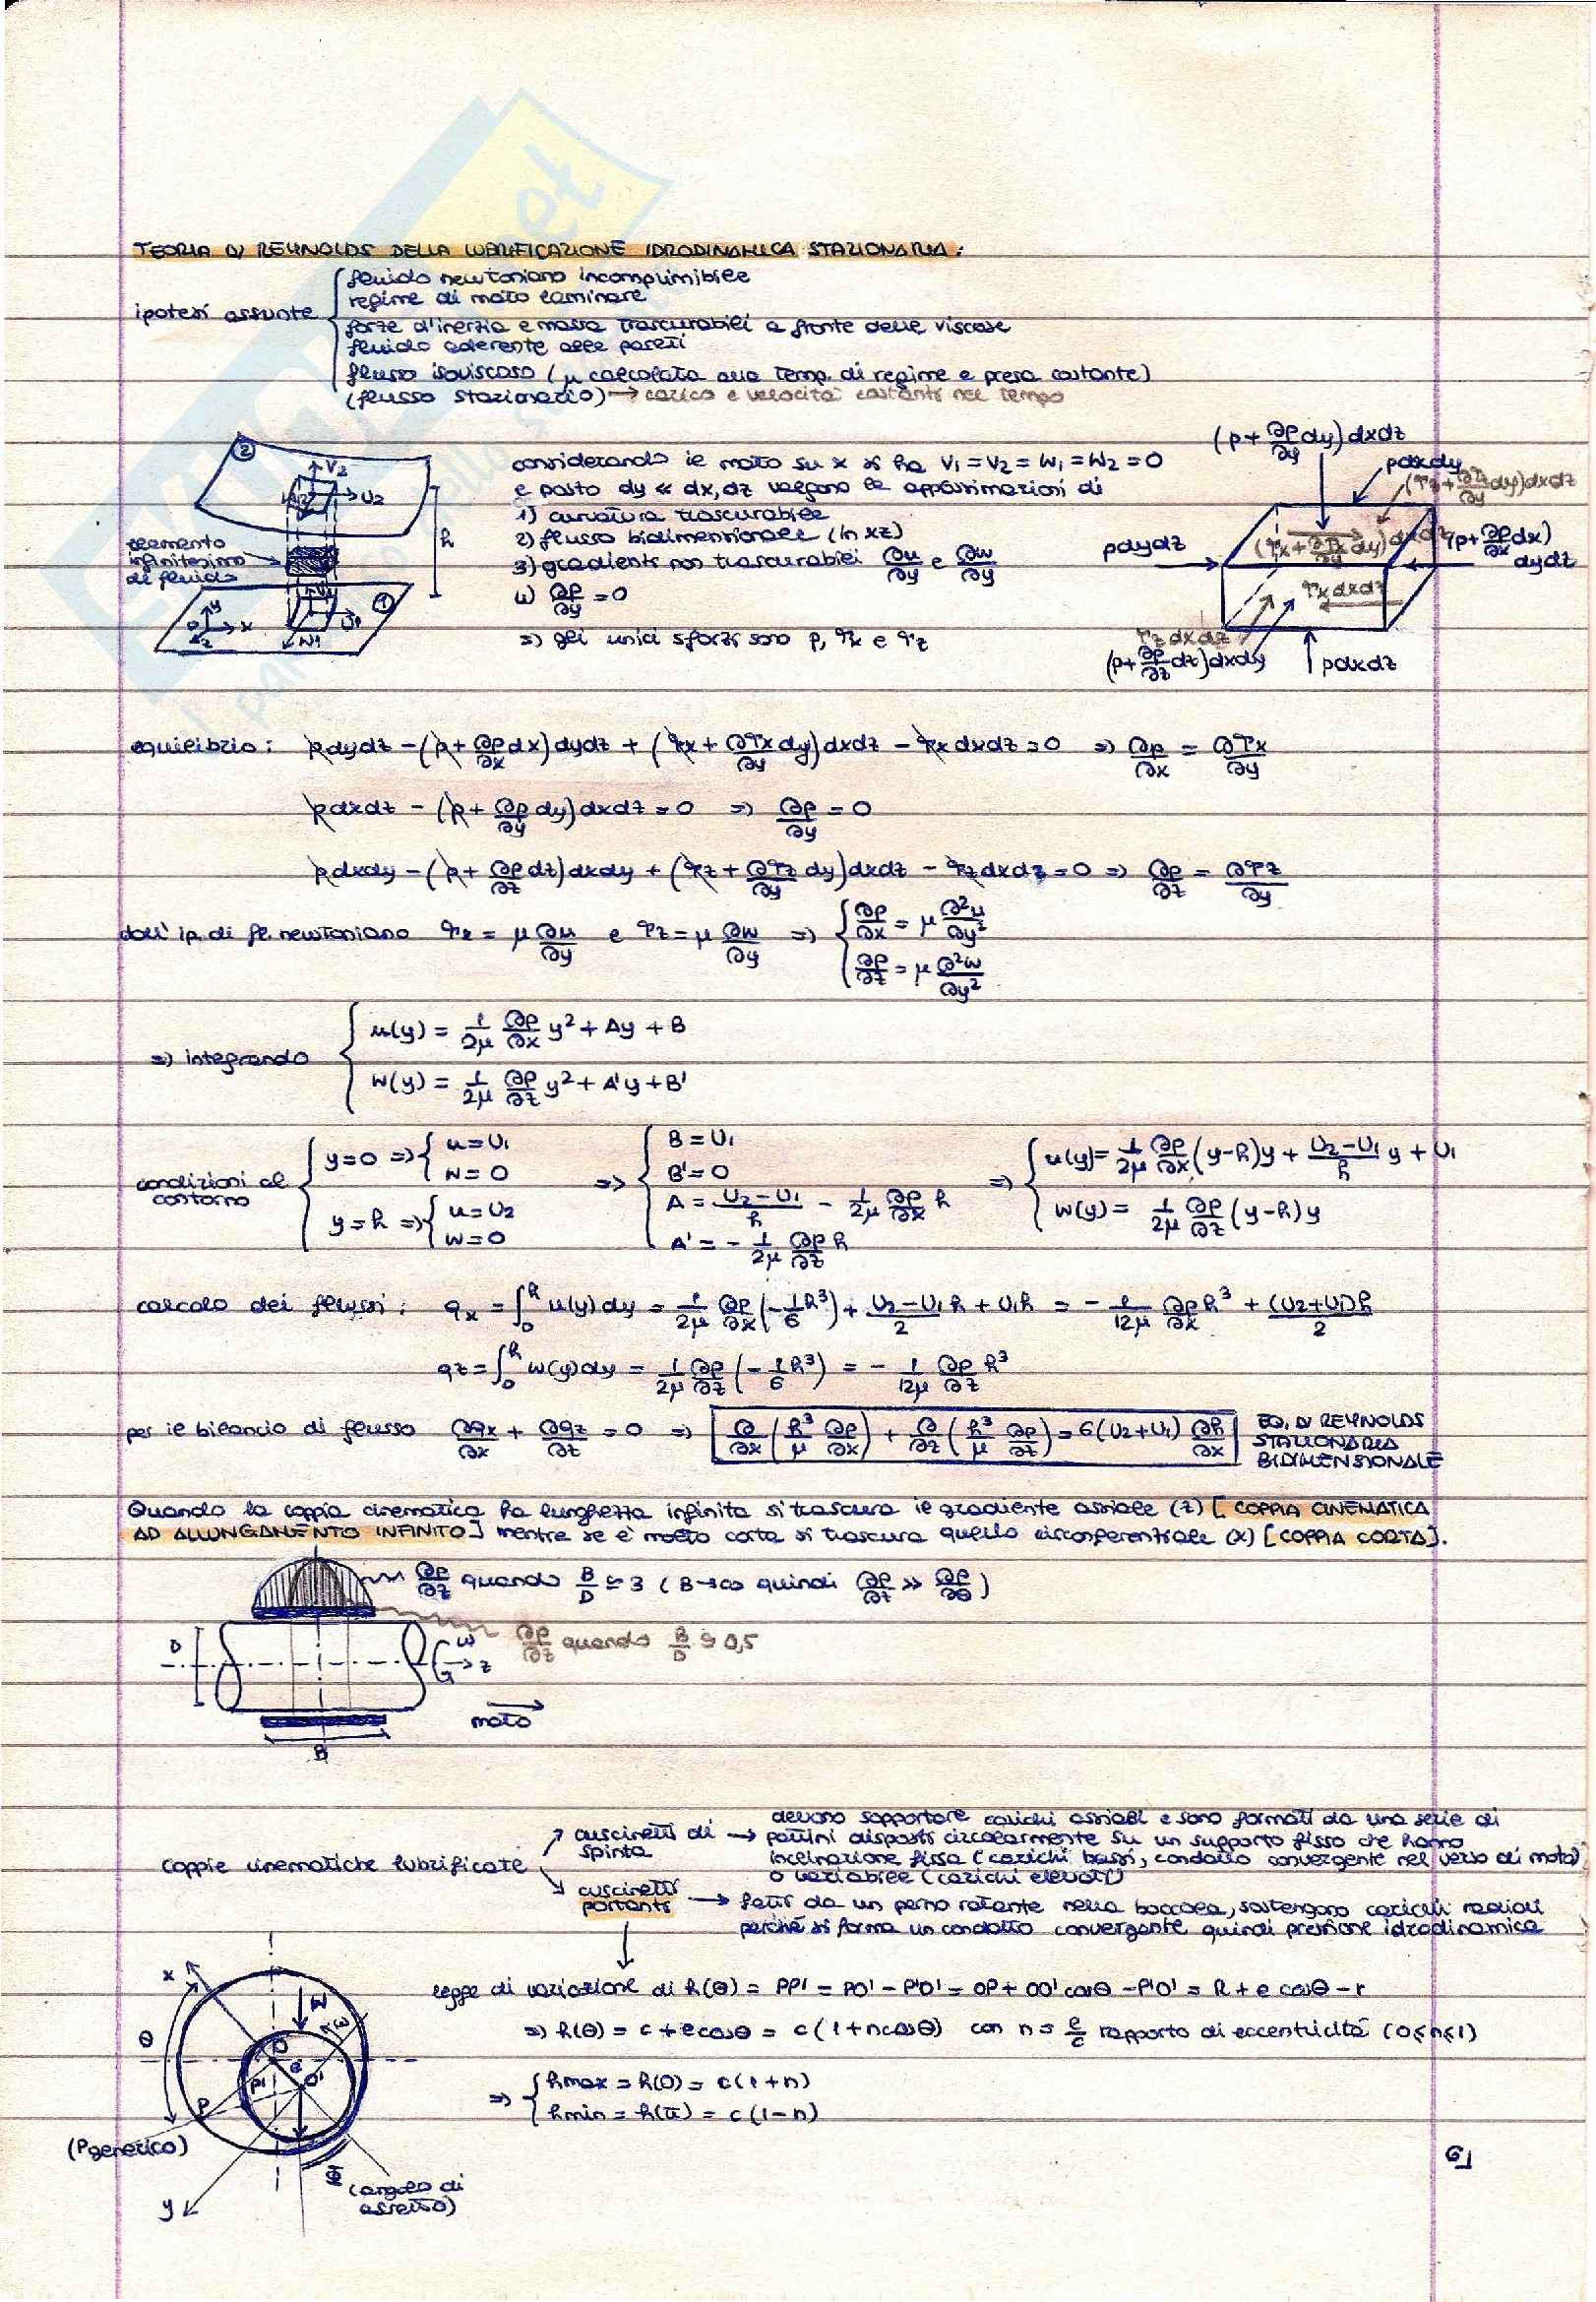 TEORIA DI REYNOLDS DELLA LUBRIFICAZIONE IDRODINAMICA STAZIONARIA:
ipotesi assunte { fluido newtoniano incomprimibile
regime di moto laminare
forze d'inerzia e massa trascurabili a fronte delle viscose
fluido aderente alle pareti
flusso isoviscoso (μ calcolata alla temp. di regime e presa costante)
(flusso stazionario) → carico e velocità costanti nel tempo
considerando il moto su x si ha V₁ = V₂ = W₁ = W₂ = 0
e posto dy ≪ dx, dz valgono le approssimazioni di
1) curvatura trascurabile
2) flusso bidimensionale (in xz)
3) gradienti non trascurabili ∂u/∂y e ∂w/∂y
4) ∂p/∂y = 0
⇒ gli unici sforzi sono p, τx e τz
② V₂ U₂ h
elemento
infinitesimo
di fluido
y x z O V₁ U₁ W₁ ①
(p + ∂p/∂y dy) dxdz
pdxdy
(τz + ∂τz/∂y dy) dxdz
(τx + ∂τx/∂y dy) dxdz
pdydz
(p + ∂p/∂x dx) dydz
τx dxdz
τz dxdz
(p + ∂p/∂z dz) dxdy
pdxdz
equilibrio: pdydz − (p + ∂p/∂x dx) dydz + (τx + ∂τx/∂y dy) dxdz − τx dxdz = 0 ⇒ ∂p/∂x = ∂τx/∂y
pdxdz − (p + ∂p/∂y dy) dxdz = 0 ⇒ ∂p/∂y = 0
pdxdy − (p + ∂p/∂z dz) dxdy + (τz + ∂τz/∂y dy) dxdz − τz dxdz = 0 ⇒ ∂p/∂z = ∂τz/∂y
dall'ip. di fl. newtoniano τx = μ ∂u/∂y e τz = μ ∂w/∂y ⇒ { ∂p/∂x = μ ∂²u/∂y²
∂p/∂z = μ ∂²w/∂y²
⇒ integrando { u(y) = 1/2μ ∂p/∂x y² + Ay + B
w(y) = 1/2μ ∂p/∂z y² + A'y + B'
condizioni al contorno { y=0 ⇒ { u = U₁
w = 0
y = h ⇒ { u = U₂
w = 0
⇒ { B = U₁
B' = 0
A = (U₂ − U₁)/h − 1/2μ ∂p/∂x h
A' = − 1/2μ ∂p/∂z h
⇒ { u(y) = 1/2μ ∂p/∂x (y−h)y + (U₂ − U₁)/h y + U₁
w(y) = 1/2μ ∂p/∂z (y−h)y
calcolo dei flussi: qx = ∫₀ʰ u(y)dy = 1/2μ ∂p/∂x (−1/6 h³) + (U₂ − U₁)/2 h + U₁h = − 1/12μ ∂p/∂x h³ + (U₂+U₁)h/2
qz = ∫₀ʰ w(y)dy = 1/2μ ∂p/∂z (−1/6 h³) = − 1/12μ ∂p/∂z h³
per il bilancio di flusso ∂qx/∂x + ∂qz/∂z = 0 ⇒ ∂/∂x (h³/μ ∂p/∂x) + ∂/∂z (h³/μ ∂p/∂z) = 6(U₂+U₁) ∂h/∂x
EQ. DI REYNOLDS
STAZIONARIA
BIDIMENSIONALE
Quando la coppia cinematica ha lunghezza infinita si trascura il gradiente assiale (z) [COPPIA CINEMATICA
AD ALLUNGAMENTO INFINITO] mentre se è molto corta si trascura quello circonferenziale (x) [COPPIA CORTA].
∂p/∂z quando B/D ≅ 3 (B→∞ quindi ∂p/∂z ≫ ∂p/∂θ)
∂p/∂z quando B/D ≅ 0,5
D ω z
moto
B
devono sopportare carichi assiali e sono formati da una serie di
coppie cinematiche lubrificate ↗ cuscinetti di spinta → pattini disposti circolarmente su un supporto fisso che hanno
inclinazione fissa (carichi bassi, condotto convergente nel verso di moto)
o variabile (carichi elevati)
↘ cuscinetti portanti → fatti da un perno rotante nella boccola, sostengono carichi radiali
perché si forma un condotto convergente quindi pressione idrodinamica
legge di variazione di h(θ) = PP' = PO' − P'O' = OP + OO' cosθ − P'O' = R + e cosθ − r
⇒ h(θ) = c + e cosθ = c(1 + n cosθ) con n = e/c rapporto di eccentricità (0 ≤ n ≤ 1)
⇒ { hmax = h(0) = c(1+n)
hmin = h(π) = c(1−n)
x θ W ω O e O' P' P
(P generico)
y
Φ
(angolo di
assetto)